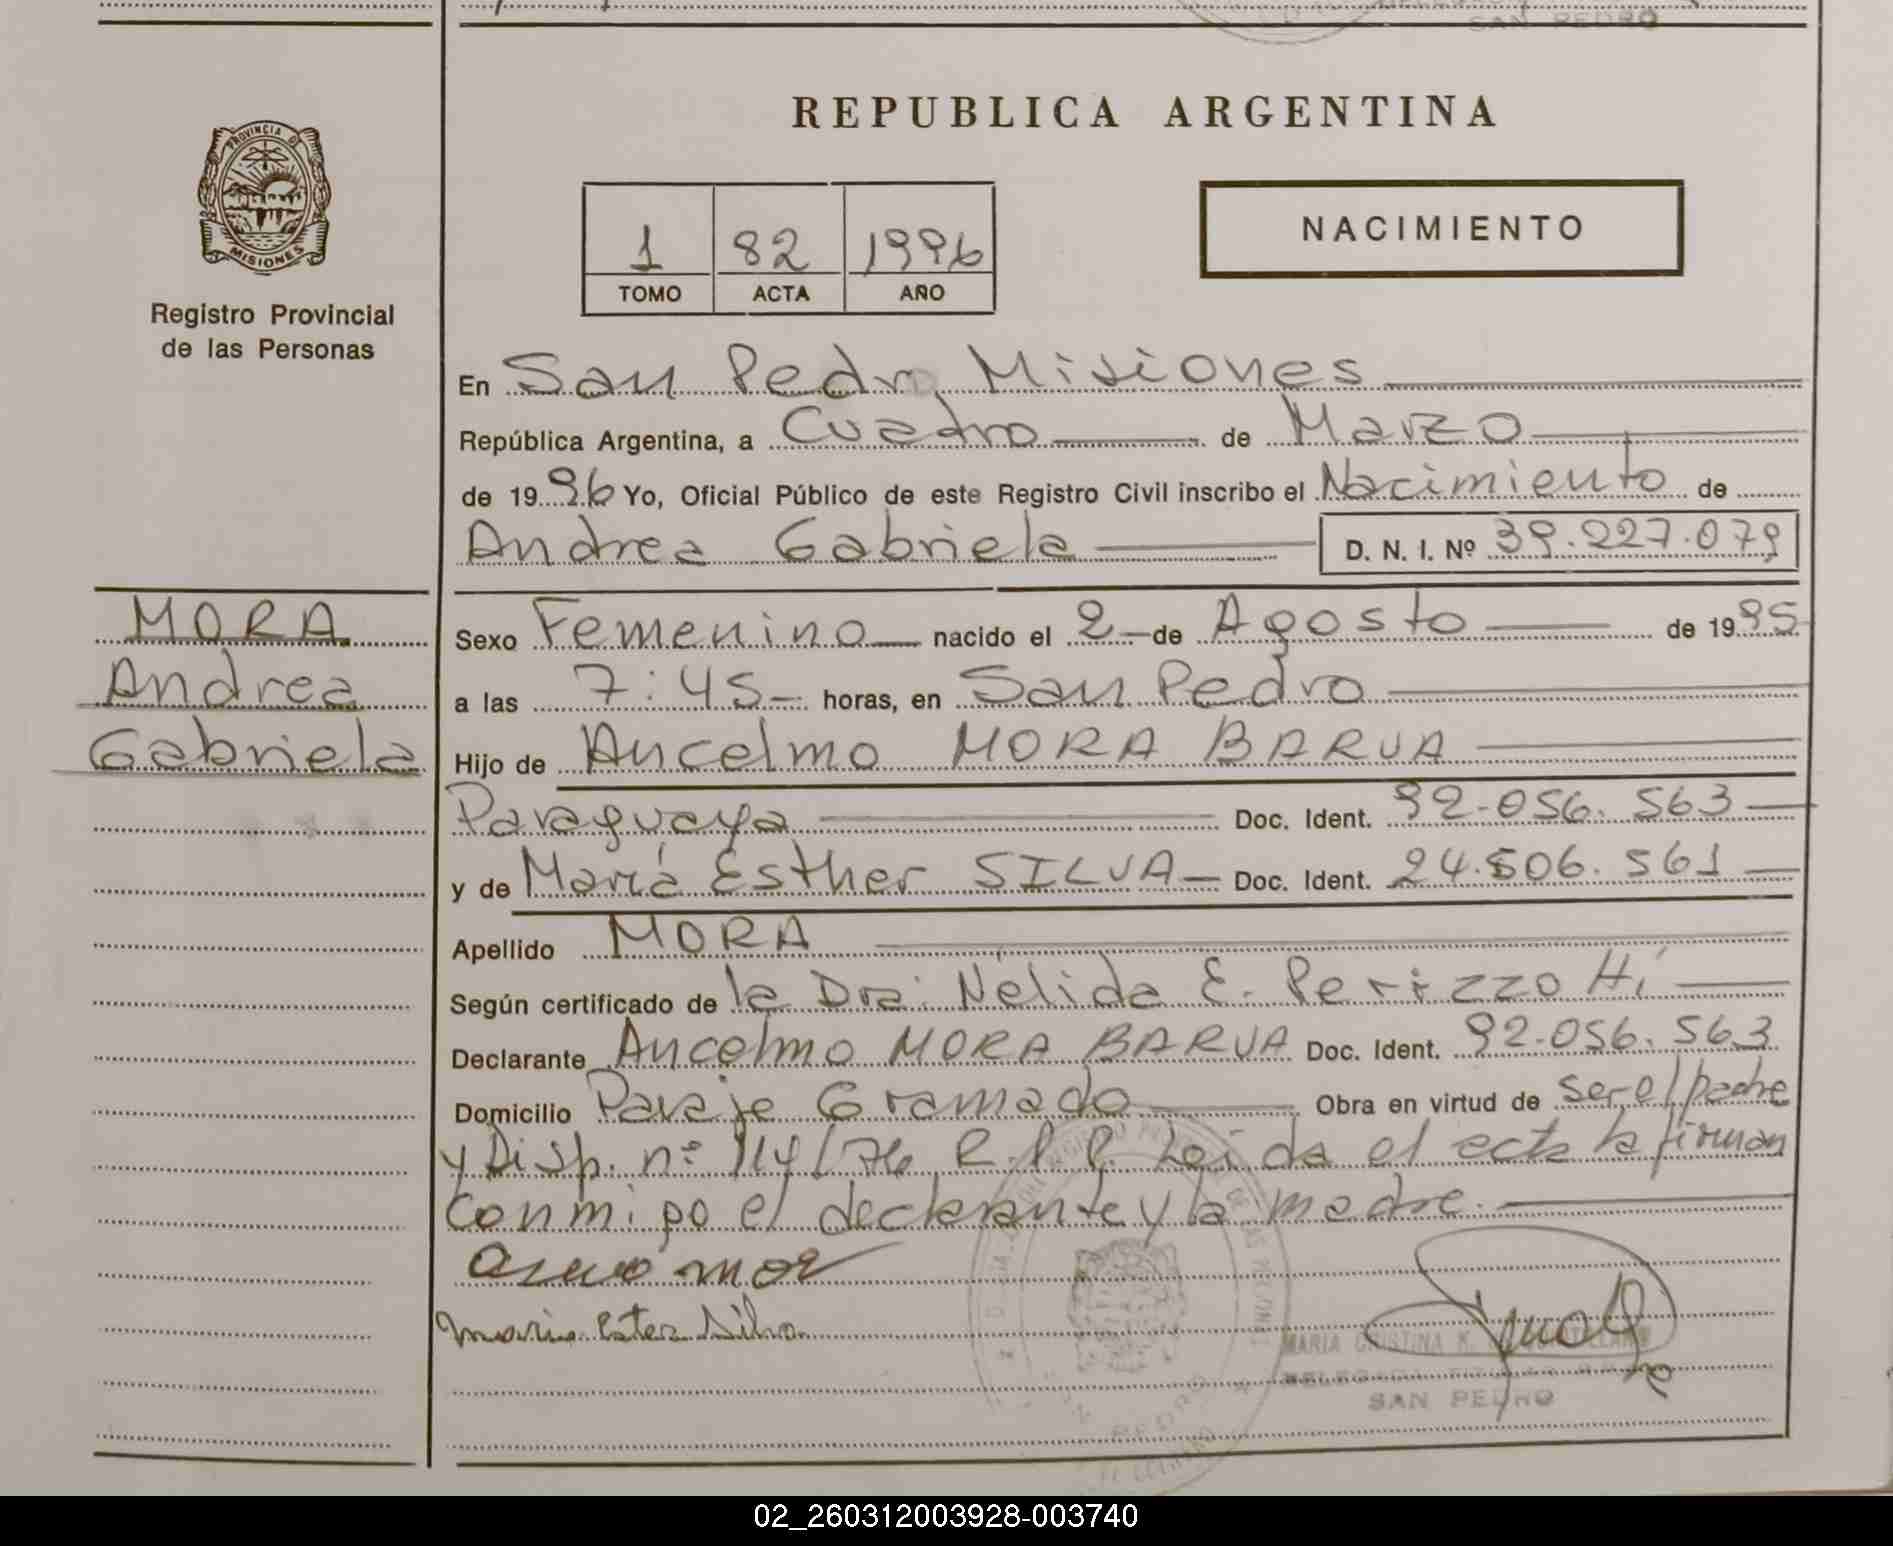 SAN PEDRO
REPUBLICA ARGENTINA
PROVINCIA DE
MISIONES
Registro Provincial
de las Personas
1 82 1996
TOMO ACTA AÑO
NACIMIENTO
En San Pedro Misiones
República Argentina, a Cuadro de Marzo
de 1996 Yo, Oficial Público de este Registro Civil inscribo el Nacimiento de
Andrea Gabriela D. N. I. Nº 39.227.079
MORA
Andrea
Gabriela
Sexo Femenino nacido el 2 de Agosto de 1995
a las 7:45 horas, en San Pedro
Hijo de Ancelmo MORA BARUA
Paraguaya Doc. Ident. 92.056.563
y de María Esther SILVA Doc. Ident. 24.506.561
Apellido MORA
Según certificado de la Dra. Nélida E. Perizzo Hí
Declarante Ancelmo MORA BARUA Doc. Ident. 92.056.563
Domicilio Paraje Gramado Obra en virtud de ser el padre
y Disp. nº 114/76 R.P.P. Leida el acta la firman
conmigo el declarante y la madre.
Maria Ester Silva
MARIA CRISTINA K.
DELEGADA TITULAR
SAN PEDRO
02_260312003928-003740